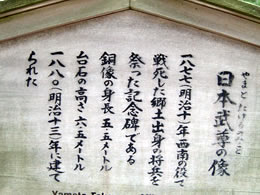 やまとたけるのみこと
日本武尊の像
一八七七(明治十)年西南の役で
戦死した郷土出身の将兵を
祭った記念碑である
銅像の身長 五.五メートル
台石の高さ 六.五メートル
一八八〇(明治十三)年に建て
られた
Yamato